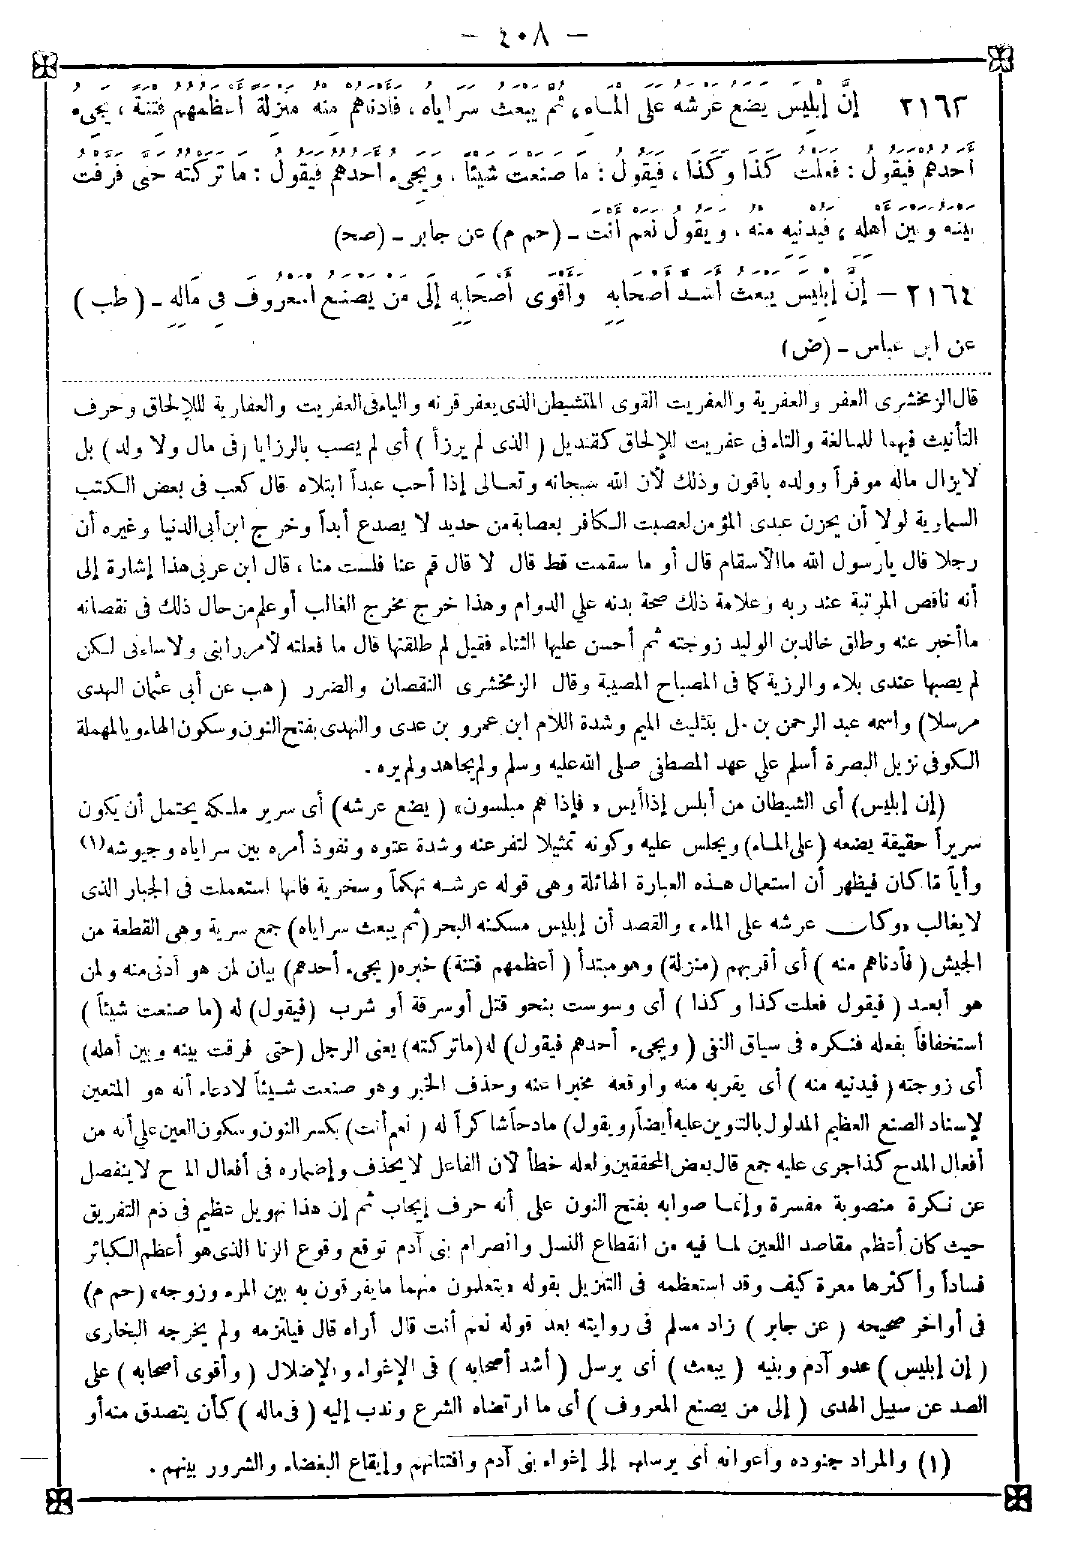 - ٤٠٨ -
٢١٦٣ إِنَّ إِبْلِيسَ يَضَعُ عَرْشَهُ عَلَى الْمَاءِ، ثُمَّ يَبْعَثُ سَرَايَاهُ، فَأَدْنَاهُمْ مِنْهُ مَنْزِلَةً أَعْظَمُهُمْ فِتْنَةً، يَجِيءُ
أَحَدُهُمْ فَيَقُولُ: فَعَلْتُ كَذَا وَكَذَا، فَيَقُولُ: مَا صَنَعْتَ شَيْئًا، وَيَجِيءُ أَحَدُهُمْ فَيَقُولُ: مَا تَرَكْتُهُ حَتَّى فَرَّقْتُ
بَيْنَهُ وَبَيْنَ أَهْلِهِ، فَيُدْنِيهِ مِنْهُ، وَيَقُولُ نَعَمْ أَنْتَ - (حم م) عن جابر - (صح)
٢١٦٤ - إِنَّ إِبْلِيسَ يَبْعَثُ أَشَدَّ أَصْحَابِهِ وَأَقْوَى أَصْحَابِهِ إِلَى مَنْ يَصْنَعُ الْمَعْرُوفَ فِي مَالِهِ - (طب)
عن ابن عباس - (ض)
قال الزمخشرى العفر والعفرية والعفريت القوى المتشيطن الذى يعفر قرنه والياء فى العفريت والعفارية للإلحاق وحرف
التأنيث فيهما للمبالغة والتاء فى عفريت للإلحاق كقنديل (الذى لم يرزأ) أى لم يصب بالرزايا (فى مال ولا ولد) بل
لا يزال ماله موفراً وولده باقون وذلك لأن الله سبحانه وتعالى إذا أحب عبداً ابتلاه قال كعب فى بعض الكتب
السماوية لولا أن يحزن عبدى المؤمن لعصبت الكافر بعصابة من حديد لا يصدع أبداً وخرج ابن أبى الدنيا وغيره أن
رجلا قال يا رسول الله ما الأسقام قال أو ما سقمت قط قال لا قال قم عنا فلست منا، قال ابن عربى هذا إشارة إلى
أنه ناقص المرتبة عند ربه وعلامة ذلك صحة بدنه على الدوام وهذا خرج مخرج الغالب أو علم من حال ذلك فى نقصانه
ما أخبر عنه وطلق خالد بن الوليد زوجته ثم أحسن عليها الثناء فقيل لم طلقتها قال ما فعلته لأمر رابنى ولا ساءنى لكن
لم يصبها عندى بلاء والرزية كما فى المصباح المصيبة وقال الزمخشرى النقصان والضرر (هب عن أبى عثمان النهدى
مرسلا) واسمه عبد الرحمن بن مل بتثليث الميم وشدة اللام ابن عمرو بن عدى والنهدى بفتح النون وسكون الهاء وبالمهملة
الكوفى نزيل البصرة أسلم على عهد المصطفى صلى الله عليه وسلم ولم يجاهد ولم يره .
(إن إبليس) أى الشيطان من أبلس إذا أيس « فإذا هم مبلسون» (يضع عرشه) أى سرير ملكه يحتمل أن يكون
سريراً حقيقة يضعه (على الماء) ويجلس عليه وكونه تمثيلا لتفرعنه وشدة عتوه ونفوذ أمره بين سراياه وجيوشه (١)
وأياً مّا كان فيظهر أن استعمال هذه العبارة الهائلة وهى قوله عرشه تهكماً وسخرية فانها استعملت فى الجبار الذى
لا يغالب «وكان عرشه على الماء» والقصد أن إبليس مسكنه البحر (ثم يبعث سراياه) جمع سرية وهى القطعة من
الجيش (فأدناهم منه) أى أقربهم (منزلة) وهو مبتدأ (أعظمهم فتنة) خبره (يجىء أحدهم) بيان لمن هو أدنى منه ولمن
هو أبعد (فيقول فعلت كذا وكذا) أى وسوست بنحو قتل أو سرقة أو شرب (فيقول) له (ما صنعت شيئاً)
استخفافاً بفعله فنكره فى سياق النفى (ويجىء أحدهم فيقول) له (ما تركته) يعنى الرجل (حتى فرقت بينه وبين أهله)
أى زوجته (فيدنيه منه) أى يقربه منه وأوقعه مخبرا عنه وحذف الخبر وهو صنعت شيئاً لادعاء أنه هو المتعين
لإسناد الصنع العظيم المدلول بالتنوين عليه أيضاً (ويقول) مادحاً شاكراً له (نعم أنت) بكسر النون وسكون العين على أنه من
أفعال المدح كذا جرى عليه جمع قال بعض المحققين ولعله خطأ لأن الفاعل لا يحذف وإضماره فى أفعال المدح لا ينفصل
عن نكرة منصوبة مفسرة وإنما صوابه بفتح النون على أنه حرف إيجاب ثم إن هذا تهويل عظيم فى ذم التفريق
حيث كان أعظم مقاصد اللعين لما فيه من انقطاع النسل وانصرام بنى آدم توقع وقوع الزنا الذى هو أعظم الكبائر
فساداً وأكثرها معرة كيف وقد استعظمه فى التنزيل بقوله «يتعلمون منهما ما يفرقون به بين المرء وزوجه» (حم م)
فى أواخر صحيحه (عن جابر) زاد مسلم فى روايته بعد قوله نعم أنت قال أراه قال فيلتزمه ولم يخرجه البخارى
(إن إبليس) عدو آدم وبنيه (يبعث) أى يرسل (أشد أصحابه) فى الإغواء والإضلال (وأقوى أصحابه) على
الصد عن سبيل الهدى (إلى من يصنع المعروف) أى ما ارتضاه الشرع وندب إليه (فى ماله) كأن يتصدق منه أو
(١) والمراد جنوده وأعوانه أى يرسلهم إلى إغواء بنى آدم وافتتانهم وإيقاع البغضاء والشرور بينهم .